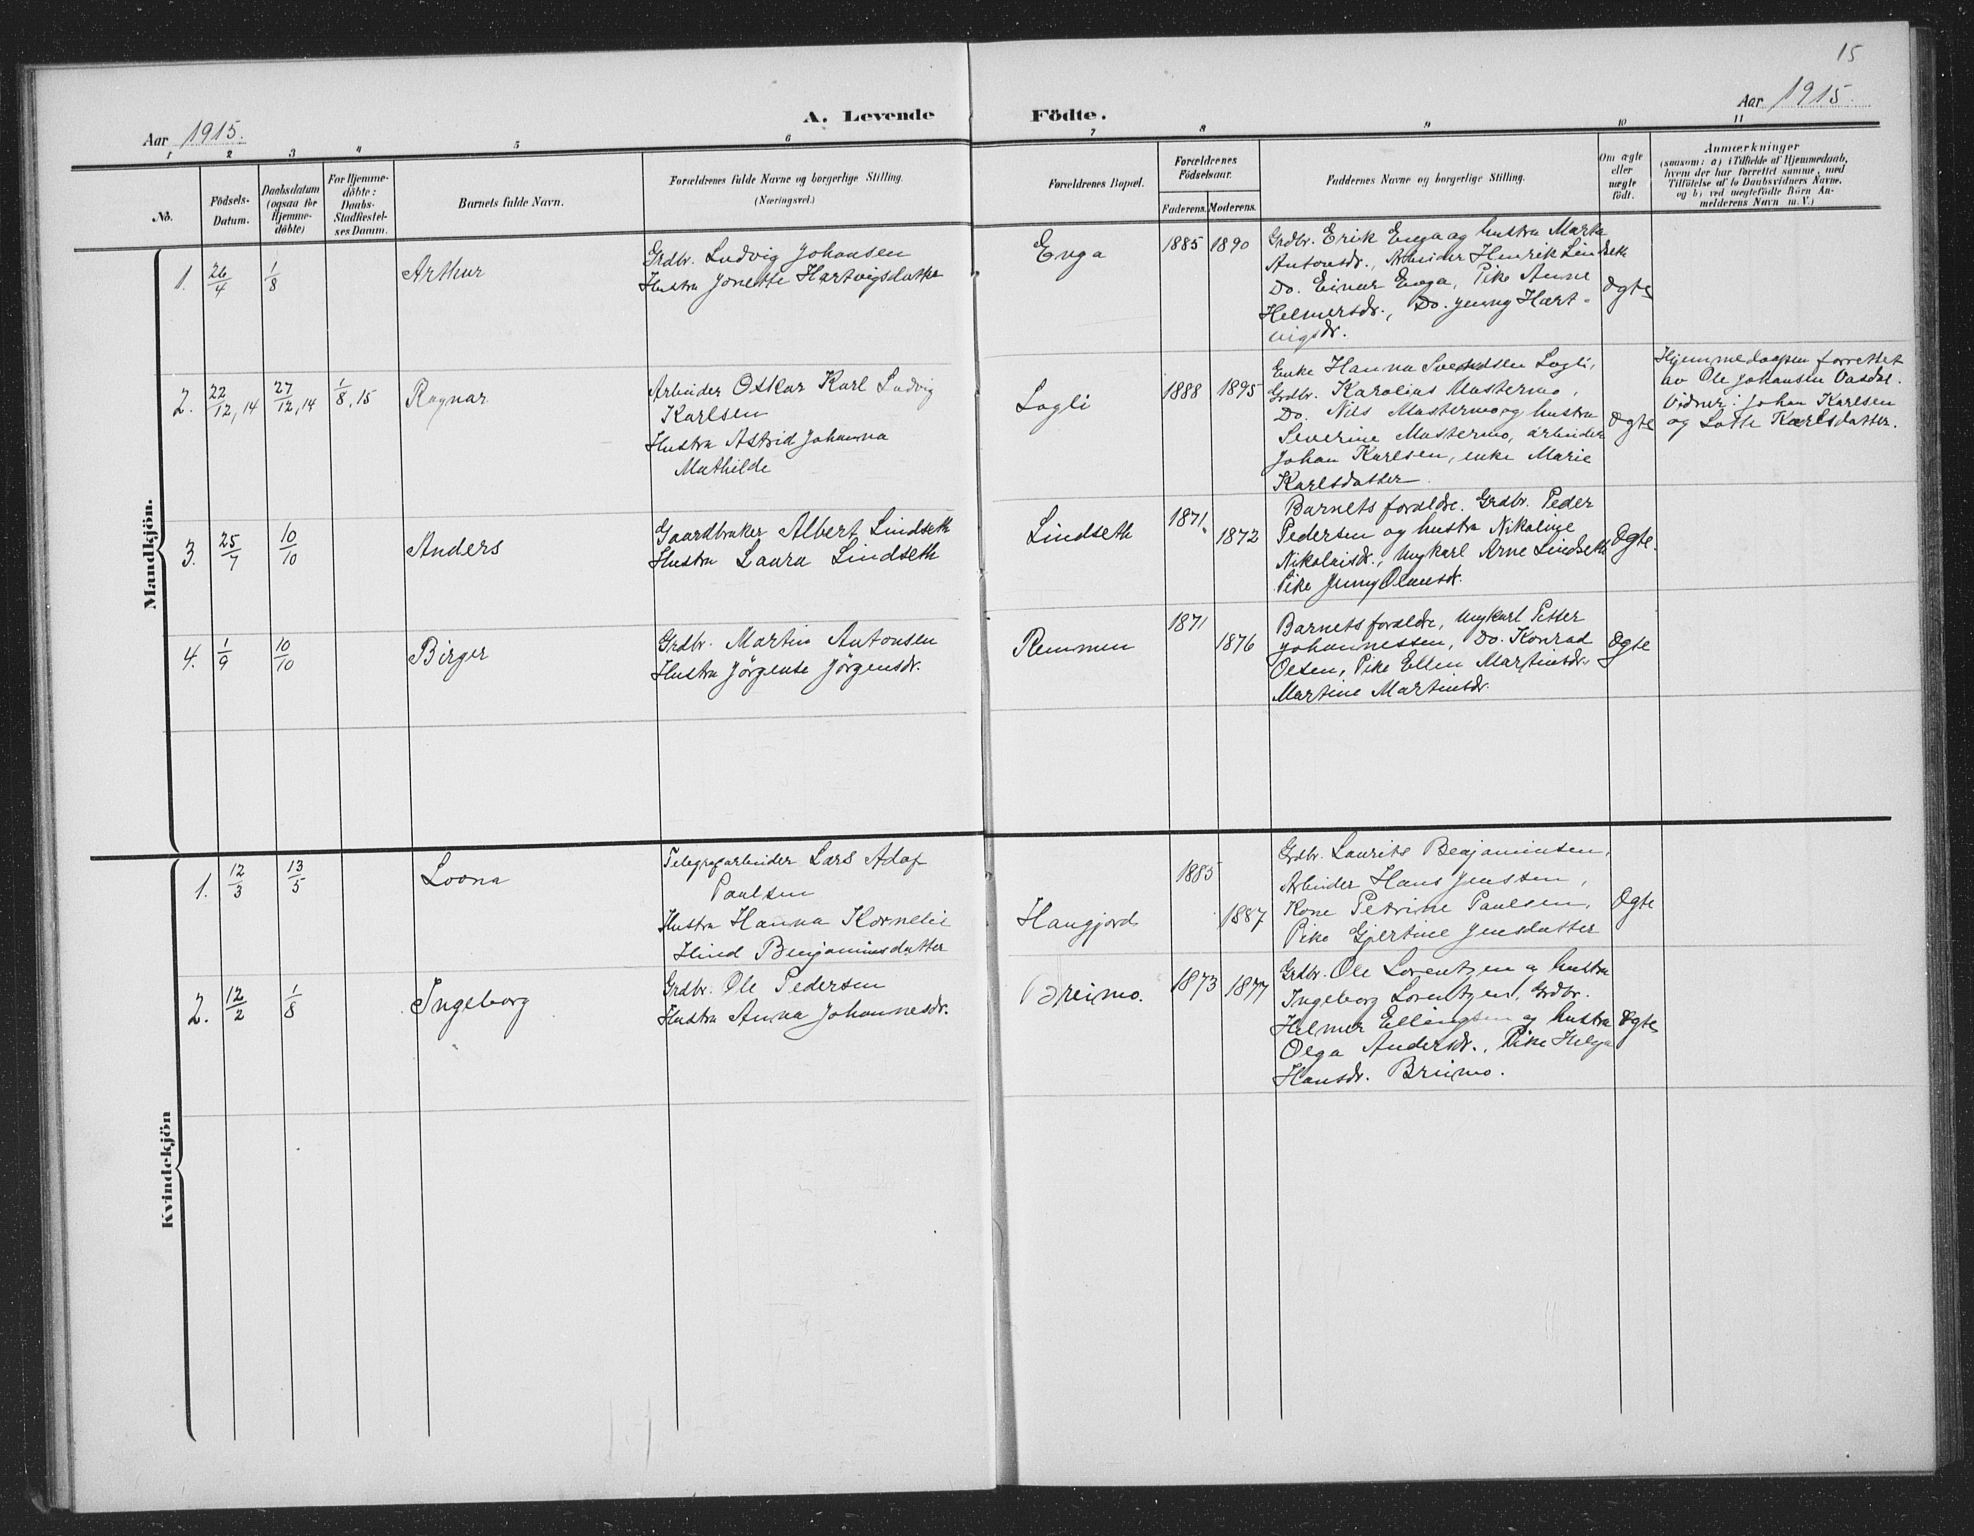 15
Aar 1915.
A. Levende Födte.
Aar 1915.
1 2 3 4 5 6 7 8 9 10 11
No.
Födsels-
Datum.
Daabsdatum
(ogsaa for
Hjemme-
döbte)
For Hjemme-
döbte:
Daabs-
Stadfæstel-
ses Datum.
Barnets fulde Navn.
Forældrenes fulde Navne og borgerlige Stilling.
(Næringsvei.)
Forældrenes Bopæl.
Forældrenes
Födselsaar.
Faderens. Moderens.
Faddernes Navne og borgerlige Stilling.
Om ægte
eller
uægte
födt.
Anmærkninger
(saasom: a) i Tilfælde af Hjemmedaab,
hvem der har forrettet samme, med
Tilföielse af to Daabsvidners Navne.
og b) ved uegtefödte Börn An-
melderens Navn m. V.)
Mandkjön.
1. 26/4 1/8
Arthur
Grdbr. Ludvig Johansen
Hustru Jonette Hartvigsdatter
Enga
1885 1890
Grdbr. Erik Enga og hustru Marta
Antonsdr., Arbeider Henrik Lindseth
Do. Einar Enga, Pike Anne
Helmersdr., Do. Jenny Hart-
vigsdr.
Ægte
2. 22/12, 14 27/12, 14 1/8, 15
Ragnar
Arbeider Oskar Karl Ludvig
Karlsen
Hustru Astrid Johanna
Mathilde
Sogli
1888 1895
Enke Hanna Svendsen Sogli,
Grdbr. Karolius Mastermo,
Do. Nils Mastermo og hustru
Severine Mastermo, arbeider
Johan Karlsen, enke Marie
Karlsdatter.
Ægte
Hjemmedaapen forrettet
av Ole Johansen Vasdal.
Vidner: Johan Karlsen
og Lotte Karlsdatter.
3. 25/7 10/10
Anders
Gaardbruker Albert Lindseth
Hustru Laura Lindseth
Lindseth
1871. 1872
Barnets forældre. Grdbr. Peder
Pedersen og hustru Nikoline
Nikolaisdr., Ungkarl Arne Lindseth
Pike Jenny Olausdr.
Ægte.
4. 1/9 10/10
Birger
Grdbr. Martin Antonsen
Hustru Jörgense Jörgensdr.
Remmen
1871 1876
Barnets forældre, Ungkarl Petter
Johannessen, Do. Konrad
Olsen, Pike Ellen Martinsdr.
Martine Martinsdr.
Ægte
Kvindekjön
1. 12/3 13/5
Lovna
Telegrafarbeider Lars Adof
Paulsen
Hustru Hanna Kornelie
Hind Benjaminsdatter
Haugjord
1885 1887
Grdbr. Laurits Benjaminsen,
Arbeider Hans Jenssen,
Kone Petrine Paulsen,
Pike Gjertine Jensdatter
Ægte
2. 12/2 1/8
Ingeborg
Grdbr. Ole Pedersen
Hustru Anna Johannesdr.
Breimo.
1873 1877
Grdbr. Ole Lorentzen og hustru
Ingeborg Lorentzen, Grdbr.
Helmer Ellingsen og hustru
Olga Andersdr., Pike Helga
Hansdr. Breimo.
Ægte